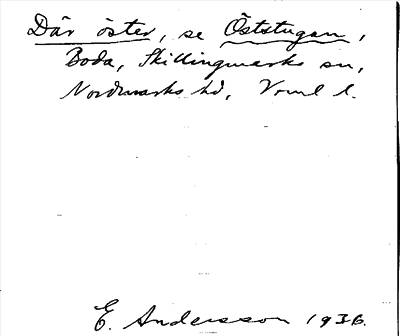 Där öster, se Öststugan,
Boda, Skillingmarks sn,
Nordmarks hd, Vrml l.
E. Andersson 1936.